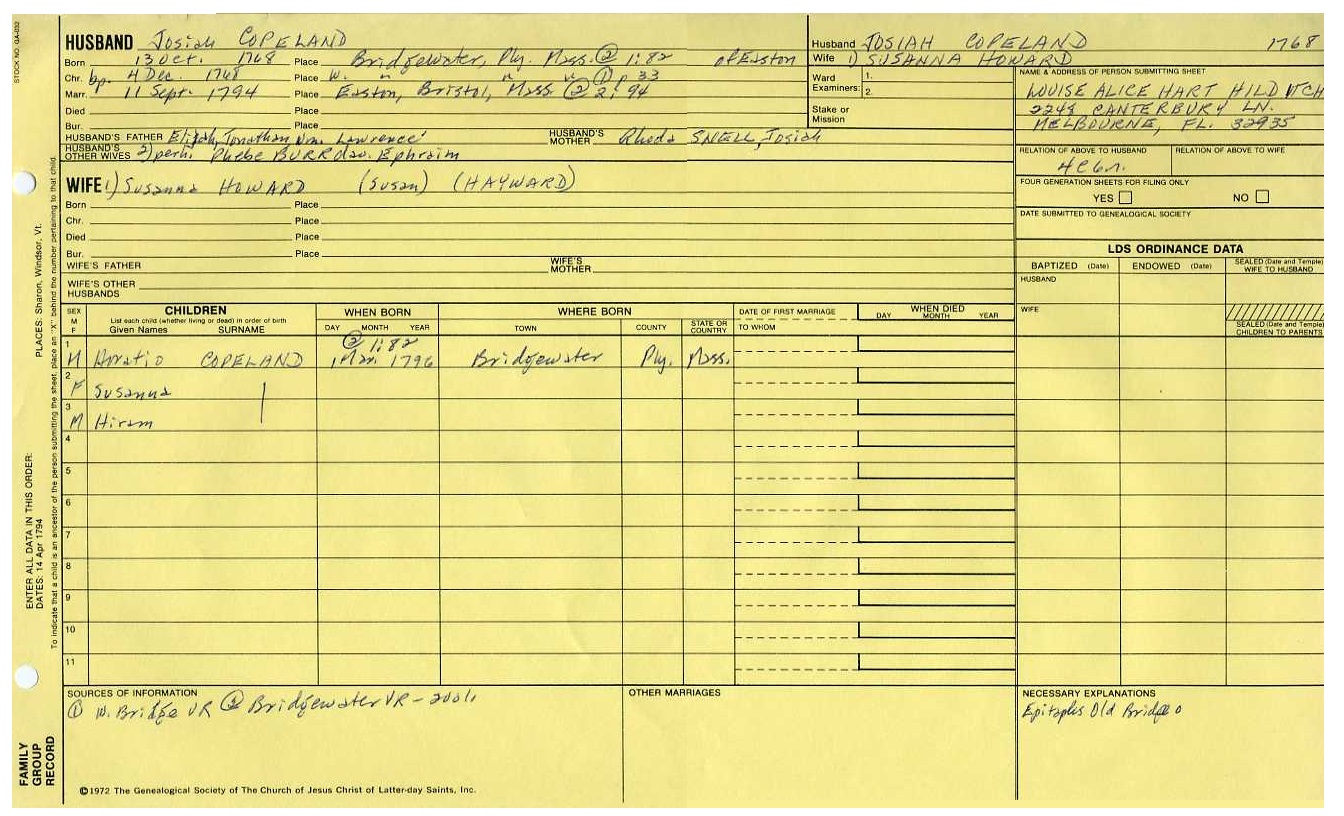 STOCK NO. GA-032
HUSBAND Josiah COPELAND
Born 13 Oct. 1768 Place Bridgewater, Ply. Mass. ② 1:82 of Easton
Chr. bp. 4 Dec. 1768 Place W. " " " ① p 33
Marr. 11 Sept. 1794 Place Easton, Bristol, Mass ② 2:94
Died Place
Bur. Place
HUSBAND'S FATHER Elijah, Jonathan, Wm. Lawrence HUSBAND'S MOTHER Rhoda SNELL, Josiah
HUSBAND'S OTHER WIVES 2) perh. Phebe BURR dau. Ephraim
Husband JOSIAH COPELAND 1768
Wife 1) SUSANNA HOWARD
Ward 1.
Examiners: 2.
Stake or
Mission
NAME & ADDRESS OF PERSON SUBMITTING SHEET
LOUISE ALICE HART
2245 CANTERBURY LN.
MELBOURNE, FL. 32935
RELATION OF ABOVE TO HUSBAND RELATION OF ABOVE TO WIFE
FOUR GENERATION SHEETS FOR FILING ONLY
YES NO
DATE SUBMITTED TO GENEALOGICAL SOCIETY
WIFE 1) Susanna HOWARD (Susan) (HAYWARD)
Born Place
Chr. Place
Died Place
Bur. Place
WIFE'S FATHER WIFE'S MOTHER
WIFE'S OTHER
HUSBANDS
LDS ORDINANCE DATA
BAPTIZED (Date) ENDOWED (Date) SEALED (Date and Temple) WIFE TO HUSBAND
HUSBAND
WIFE
SEALED (Date and Temple) CHILDREN TO PARENTS
SEX M F CHILDREN WHEN BORN WHERE BORN DATE OF FIRST MARRIAGE WHEN DIED
List each child (whether living or dead) in order of birth
Given Names SURNAME DAY MONTH YEAR TOWN COUNTY STATE OR COUNTRY TO WHOM DAY MONTH YEAR
② 1:82
1 M Horatio COPELAND 1 Mar. 1796 Bridgewater Ply. Mass.
2 F Susanna
3 M Hiram
4
5
6
7
8
9
10
11
SOURCES OF INFORMATION
① W. Bridge VR ② Bridgewater VR - 2 vol.
OTHER MARRIAGES
NECESSARY EXPLANATIONS
Epitaphs Old Bridge
©1972 The Genealogical Society of The Church of Jesus Christ of Latter-day Saints, Inc.
FAMILY
GROUP
RECORD
ENTER ALL DATA IN THIS ORDER:
DATES: 14 Apr 1794 PLACES: Sharon, Windsor, Vt.
To indicate that a child is an ancestor of the person submitting the sheet, place an "X" behind the number pertaining to that child.